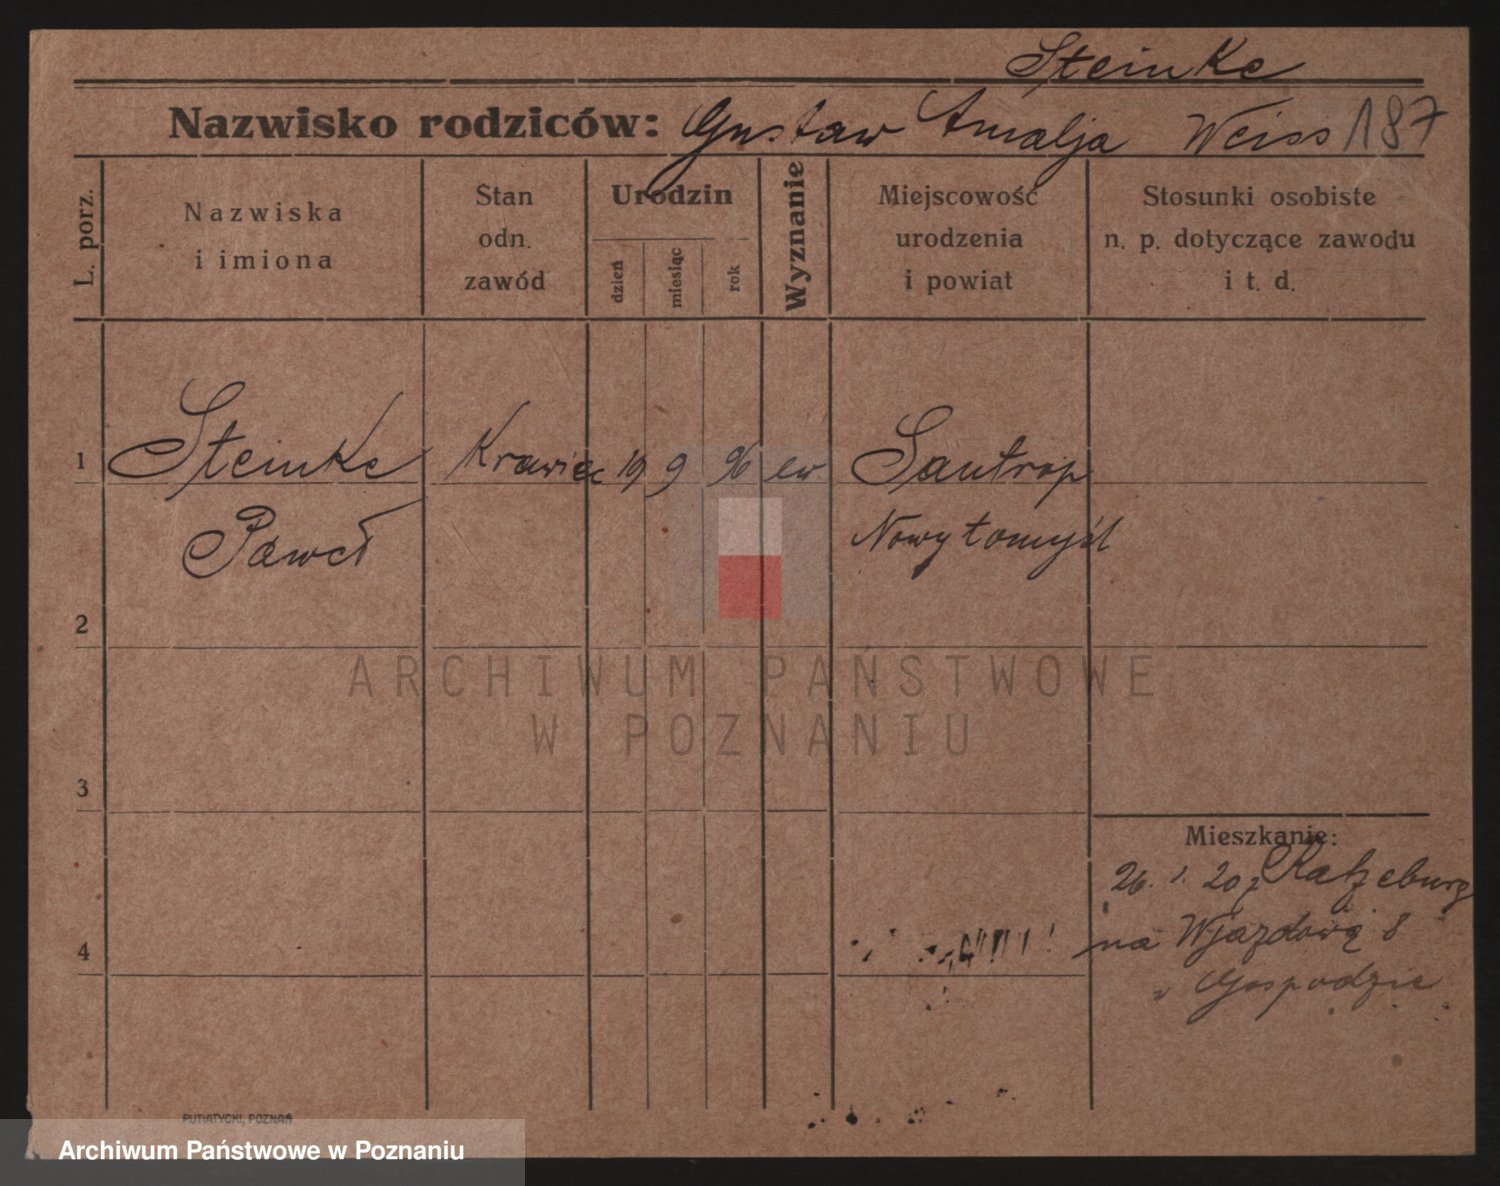 Steinke
Nazwisko rodziców: Gustaw Amalja Weiss 187
L. porz.
Nazwiska
i imiona
Stan
odn.
zawód
Urodzin
dzień
miesiąc
rok
Wyznanie
Miejscowość
urodzenia
i powiat
Stosunki osobiste
n. p. dotyczące zawodu
i t. d.
1 Steinke Krawiec 19 9 96 ew. Sautrop
Paweł Nowytomyśl
2
ARCHIWUM PAŃSTWOWE
W POZNANIU
3
Mieszkanie:
26. 1. 20 z Ratzeburg
4
na Wjazdową 8
Gospodzie
PUTIATYCKI, POZNAŃ
Archiwum Państwowe w Poznaniu